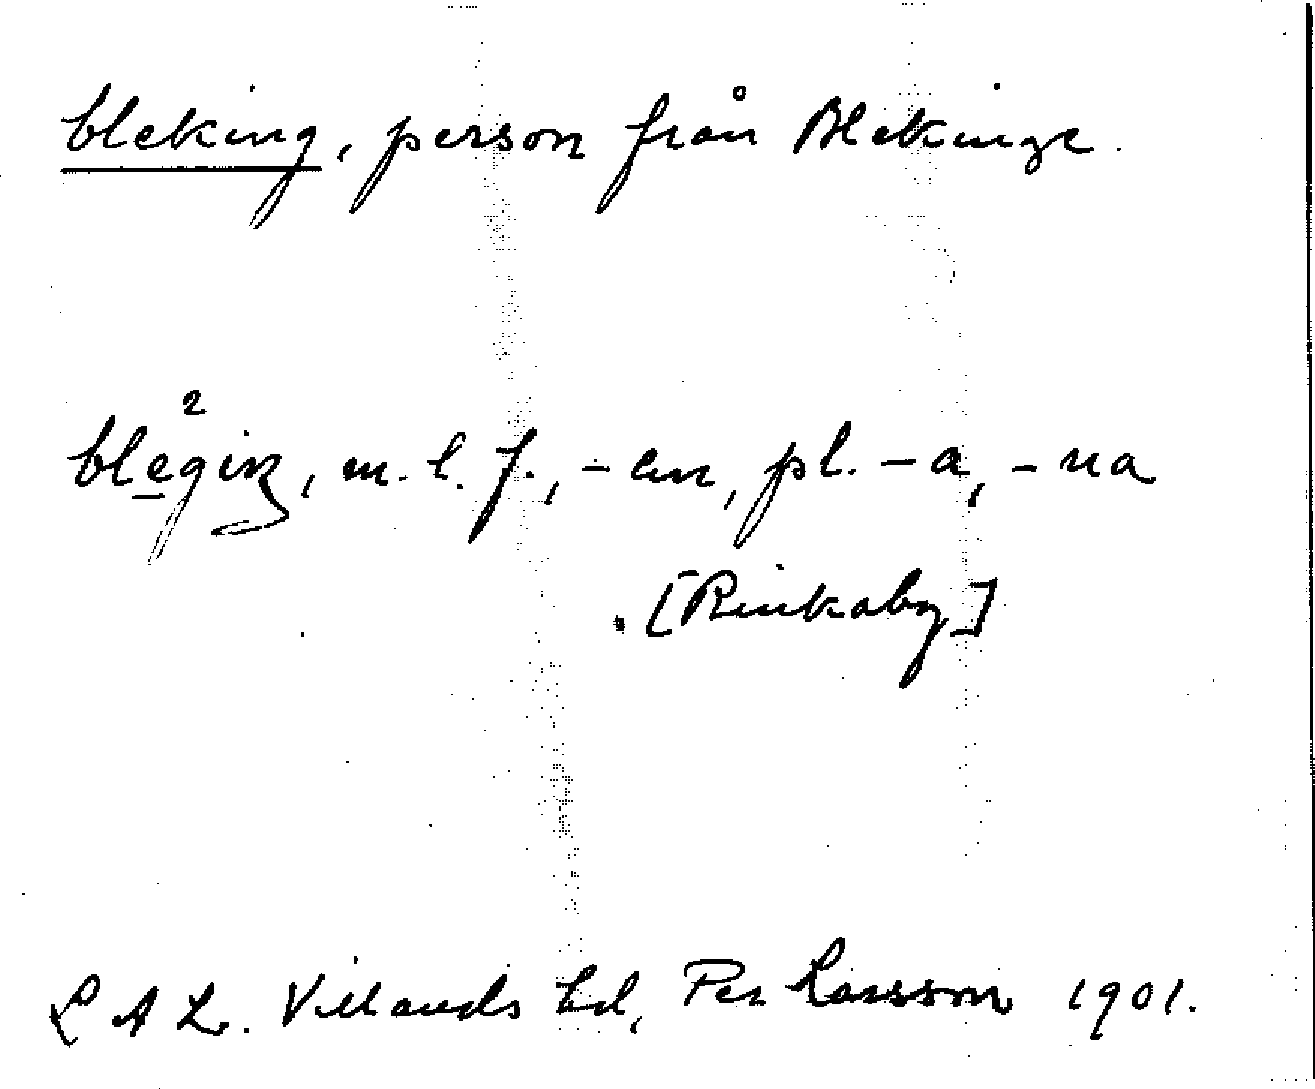 bleking, person från Blekinge.
ble̲²giŋ, m. l. f., -en, pl. -a, -na
[Rinkaby]
L A L. Villands hd, Per Larsson 1901.